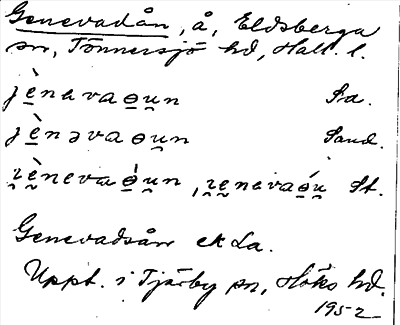 Genevadån, å, Eldsberga
sn, Tönnersjö hd, Hall. l.
jè̱navaɵ̱u̮n Sa.
jè̱nəvaɵu̮n Sand.
ɪ̮è̮nevaɵ̱́u̮n, ɪ̮e̮navaɵ́u̮ St.
Genevadsån ek La.
Uppt. i Tjärby sn, Höks hd.
1952